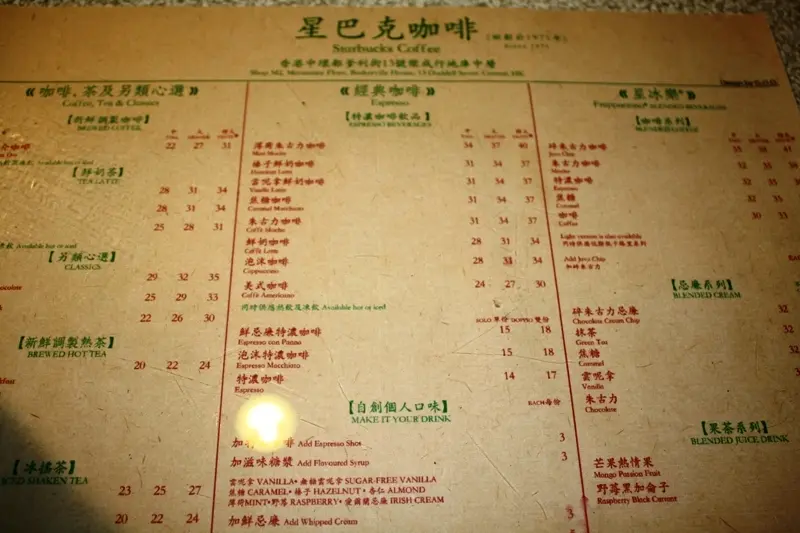 星巴克咖啡
Starbucks Coffee
Since 1971
香港中環都爹利街13號樂成行地庫中層
Shop M2, Mezzanine Floor, Baskerville House, 13 Duddell Street, Central, HK
《咖啡,茶及另類心選》
Coffee, Tea & Classics
【新鮮調製咖啡】
BREWED COFFEE
22 27 31
Available hot or iced
【鮮奶茶】
TEA LATTE
28 31 34
28 31 34
25 28 31
Available hot or iced
【另類心選】
CLASSICS
29 32 35
25 29 33
22 26 30
【新鮮調製熱茶】
BREWED HOT TEA
20 22 24
【冰搖茶】
ICED SHAKEN TEA
23 25 27
20 22 24
《經典咖啡》
Espresso
【特濃咖啡飲品】
ESPRESSO BEVERAGES
薄荷朱古力咖啡 34 37 40
Mint Mocha
榛子鮮奶咖啡 31 34 37
Hazelnut Latte
雲呢拿鮮奶咖啡 31 34 37
Vanilla Latte
焦糖咖啡 31 34 37
Caramel Macchiato
朱古力咖啡 31 34 37
Caffè Mocha
鮮奶咖啡 28 31 34
Caffè Latte
泡沫咖啡 28 31 34
Cappuccino
美式咖啡 24 27 30
Caffè Americano
同時供應熱飲及凍飲 Available hot or iced
SOLO 單份 DOPPIO 雙份
鮮忌廉特濃咖啡 15 18
Espresso con Panna
泡沫特濃咖啡 15 18
Espresso Macchiato
特濃咖啡 14 17
Espresso
【自創個人口味】
MAKE IT YOUR DRINK
EACH 每份
Add Espresso Shot 3
加滋味糖漿 Add Flavoured Syrup 3
雲呢拿 VANILLA• 無糖雲呢拿 SUGAR-FREE VANILLA
焦糖 CARAMEL• 榛子 HAZELNUT • 杏仁 ALMOND
薄荷 MINT• 野莓 RASPBERRY• 愛爾蘭忌廉 IRISH CREAM
加鮮忌廉 Add Whipped Cream 3
《星冰樂®》
Frappuccino® BLENDED BEVERAGES
【咖啡系列】
BLENDED COFFEE
碎朱古力咖啡 35 38 41
Java Chip
朱古力咖啡
Mocha
特濃咖啡
Espresso
焦糖 32 35
Caramel
咖啡 30 33
Coffee
Light version is also available
同時供應低脂低卡路里系列
Add Java Chip
加碎朱古力
【忌廉系列】
BLENDED CREAM
碎朱古力忌廉 32
Chocolate Cream Chip
抹茶 32
Green Tea
焦糖
Caramel
雲呢拿
Vanilla
朱古力
Chocolate
【果茶系列】
BLENDED JUICE DRINK
芒果熱情果
Mango Passion Fruit
野莓黑加侖子
Raspberry Black Currant